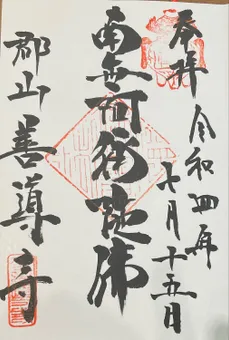 奉拝
令和四年
七月十五日
南無阿弥陀佛
郡山
善導寺